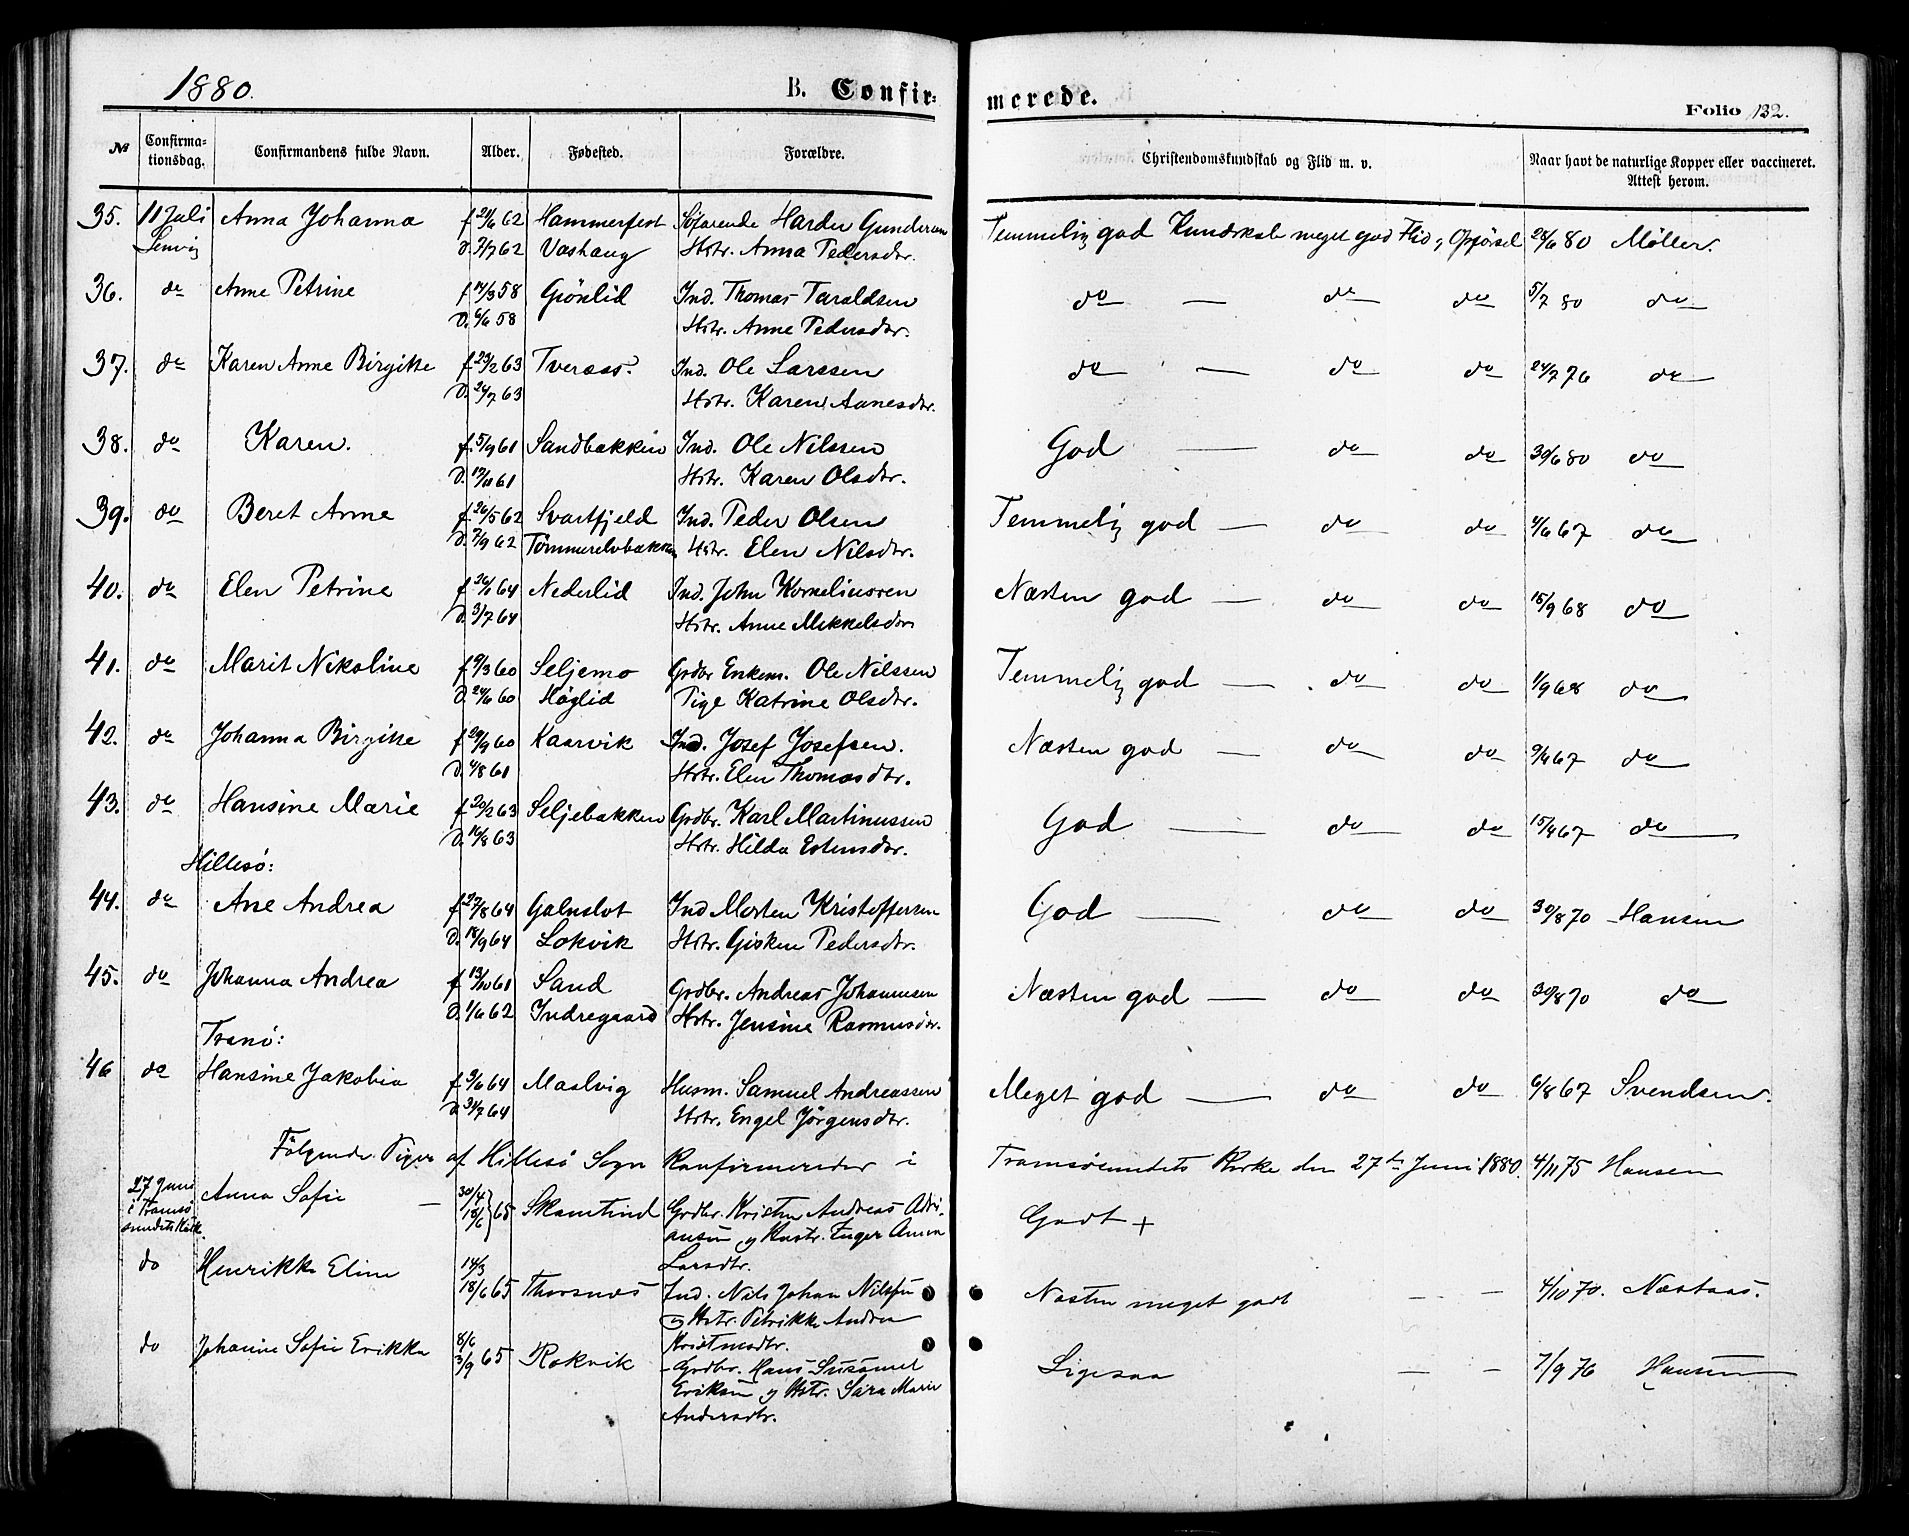 1880.
B. Confir-
merede.
Folio 132.
№ Confirma-tionsdag. Confirmandens fulde Navn. Alder. Fødested. Forældre. Christendomskundskab og Flid m. v. Naar havt de naturlige Kopper eller vaccineret. Attest herom.
35. 11 Juli Anna Johanna f. 21/6 62 Hammerfest Søfarende Harder Gundersen Temmelig god Kundskab meget god Flid og Opførsel 28/6 80 Møller.
Lenvig D. 7/7 62 Vashaug Hstr. Anna Pedersdtr.
36. do Anne Petrine f 14/3 58 Grønlid Ind. Thomas Taraldsen do — do do 5/7 80 do
D. 6/6 58 Hstr. Anne Pedersdtr.
37. do Karen Anne Birgitte f 23/2 63 Tveraas. Ind. Ole Larssen do — do do 24/7 76 do
D. 24/7 63 Hstr. Karen Aanesdtr.
38. do Karen. f. 5/9 61 Sandbakken Ind. Ole Nilssen God — do do 30/6 80 do
D. 13/10 61 Hstr. Karen Olsdtr.
39. do Beret Anne f. 26/5 62 Svartfjeld Ind. Peder Olsen Temmelig god — do do 4/6 67 do
D. 7/9 62 Tømmerelvbakken Hstr. Elen Nilsdtr.
40. do Elen Petrine f 26/1 64 Nederlid Ind. John Korneliussen Næsten god — do do 15/9 68 do
D. 3/7 64 Hstr. Anne Mikkelsdtr
41. do Marit Nikoline f 9/3 60 Seljemo Grdbr Enkem. Ole Nilssen Temmelig god — do do 1/9 68 do
D. 24/6 60 Høglid Pige Katrine Olsdtr.
42. do Johanna Birgitte f 29/9 60 Kaarvik Ind. Josef Josefsen. Næsten god — do do 9/4 67 do
D. 4/8 61 Hstr. Elen Thomasdtr.
43. do Hansine Marie f 20/2 63 Seljebakken Grdbr. Karl Martinussen God — do do 15/4 67 do
D. 16/8 63 Hstr. Hilda Estensdtr.
Hillesø:
44. do Ane Andrea f 27/8 64 Galnslot Ind Morten Kristoffersen God — do do 30/8 70 Hansen
D. 18/9 64 Lokvik Hstr. Gisken Pedersdtr.
45. do Johanna Andrea f 13/10 61 Sand Grdbr. Andreas Johannesen Næsten god — do do 30/8 70 do
D. 1/6 62 Indregaard Hstr. Jensine Rasmusdtr.
Tranø:
46 do Hansine Jakobia f 9/6 64 Maalvig Husm. Samuel Andreassen Meget god — do do 6/8 67 Svendsen.
D 31/7 64 Hstr. Engel Jørgensdtr.
Følgende Piger af Hillesø Sogn Konfirmereder i Tromsøsundets Kirke den 27de Juni 1880. 4/11 75 Hansen
27 Juni Anna Sofie — 30/4 18/6 } 65 Skamtind Grdbr. Kristen Andreas Adri- Godt +
i Tromsø ansen og Hustr. Inger Anna
sundets Kirk. Larsdtr.
do Henrikke Eline 14/3 18/6 65 Thorsnes Ind. Nils Johan Nilssen Næsten meget godt — — 4/10 70. Næstaas.
og Hstr. Petrikke Andrea
Kristensdtr.
do Johanne Sofie Erikka 8/6 3/9 65 Rokvik Grdbr. Hans Susamel Ligesaa — — 7/9 76 Hansen
Eriksen og Hstr. Sara Marie
Andersdtr.